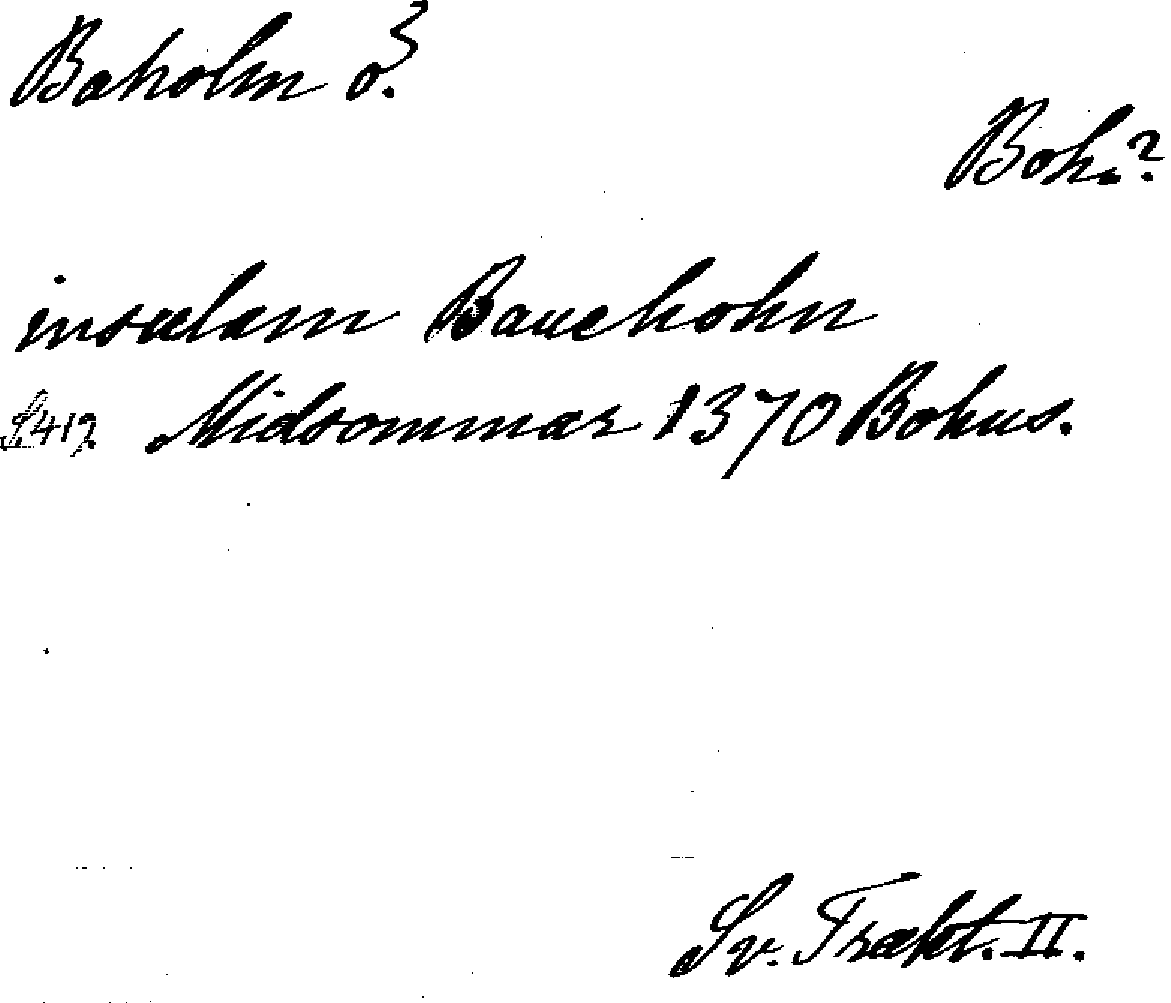 Baholm ö?
Boh.?
insulam Baueholm
S. 412 Midsommar 1370 Bohus.
Sv. Trakt. II.